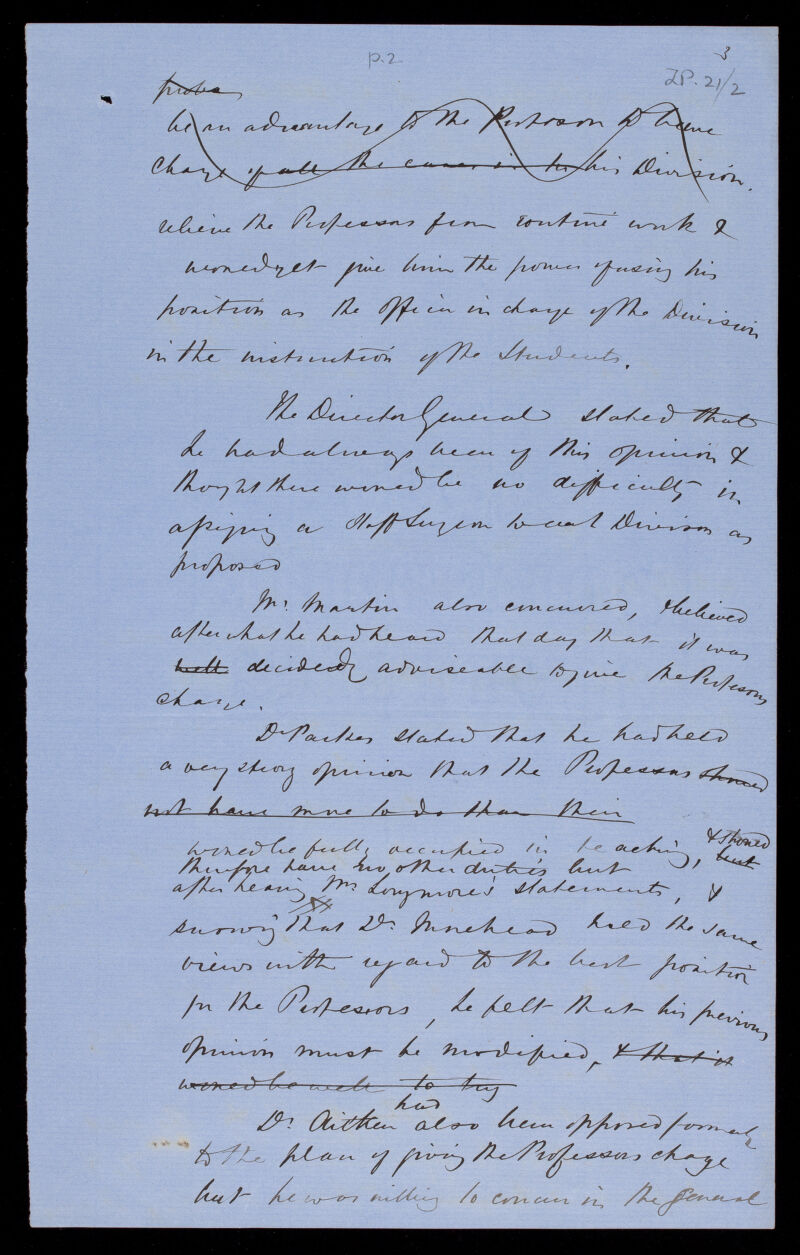 p.2
3
ZP. 21/2
proba
be an advantage to the Professor to have
charge of all the cases in his Division.
relieve the Professors from routine work &
would yet give him the power of using his
position as the Officer in charge of the Division
in the instruction of the Students.
The Director General stated that
he had always been of this opinion &
thought there would be no difficulty in
assigning a Staff Surgeon to each Division as
proposed
Mr. Martin also concurred, & believed
after what he had heard that day that it was
decidedly adviseable to give the Professors
charge.
Dr Parkes stated that he had held
a very strong opinion that the Professors should
not have more to do than their
would be fully occupied in teaching, & should
therefore have no other duties but
after hearing Mr Longmore's statements, &
knowing that Dr. Morehead held the same
views with regard to the best position
for the Professors, he felt that his previous
opinion must be modified, & that it
would be well to try
Dr. Aitken had also been opposed formerly
to the plan of giving the Professors charge
but he was willing to concur in the general